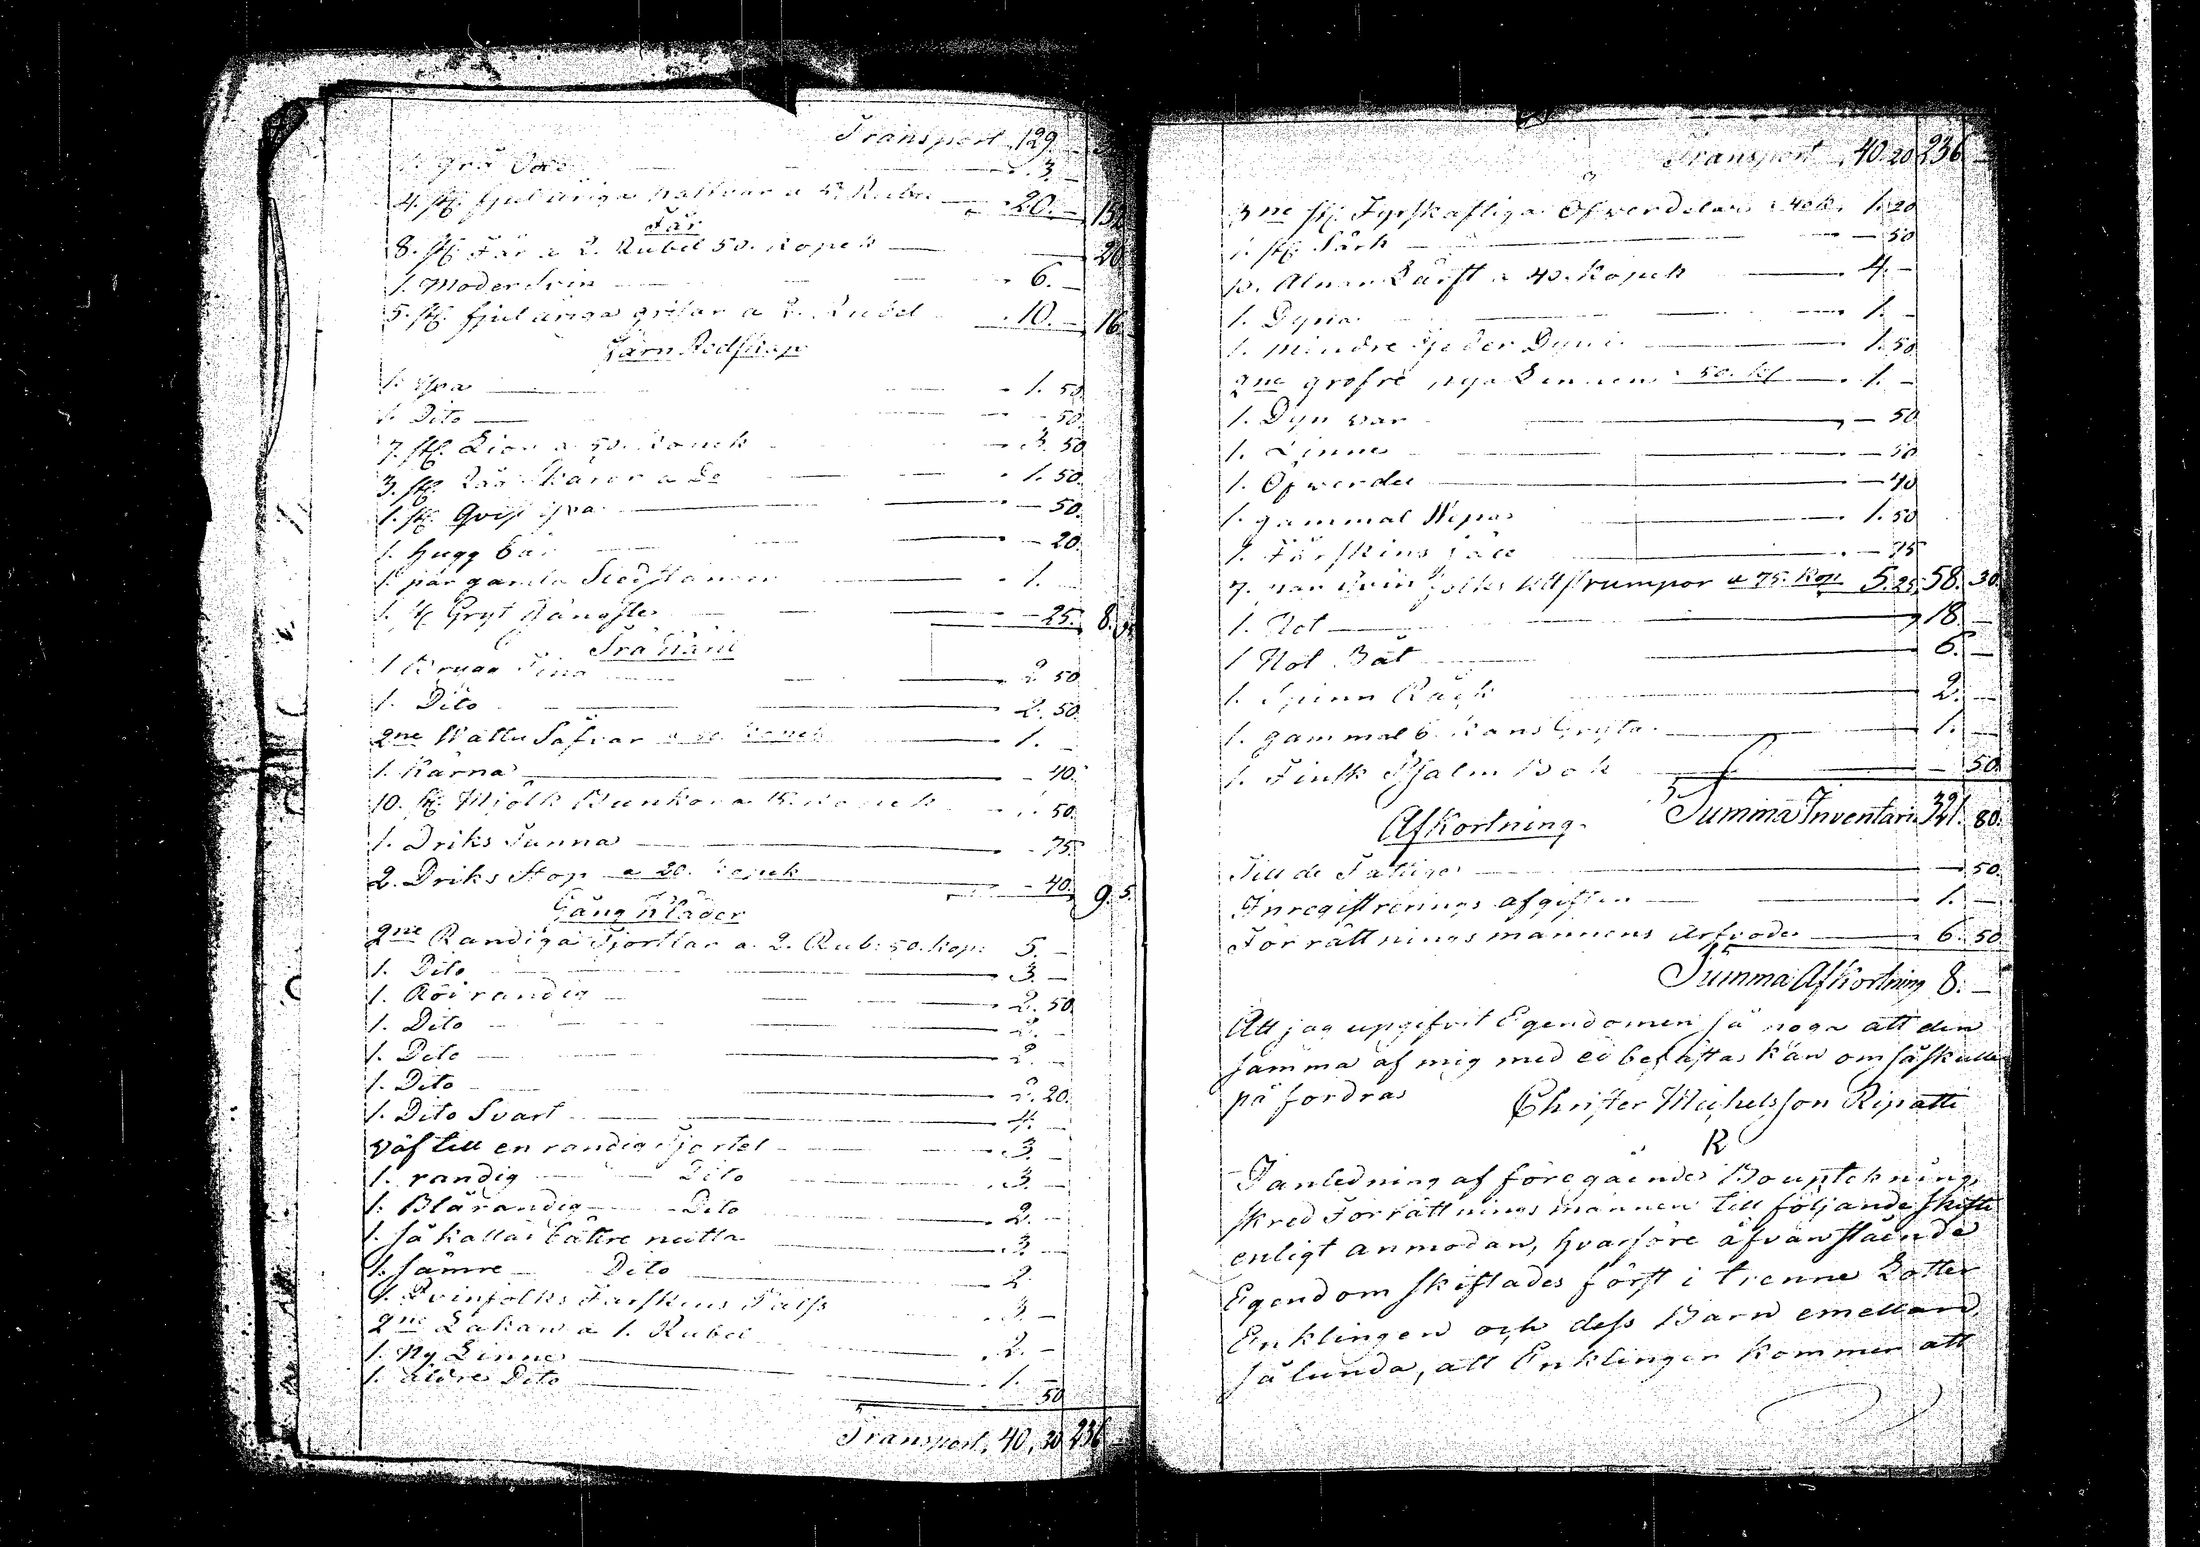 Transport 129. —
1. grå Oxe — 3. —
4. st. fjul åriga kalfvar a 5 Rubel — 20. — 152
Får
8. st. Får a 2. Rubel 50. Kopek — 20
1. Moder Svin — 6. —
5. st. fjul åriga grisar a 2. Rubel — 10. — 16
Järn Redskap
1. Yxa — 1. 50.
1. Dito — 50.
7. st. Liar a 50. Kopek — 3. 50
3. st. Skäror a Do — 1. 50.
1. st. Qvist Yxa — 50.
1. Hugg — 20.
1. par gamla — 1. —
1. st. Gryt Hängsle — 25. 8. 95
Trä Käril
1 Brygg Tina — 2. 50
1. Dito — 2. 50.
2ne Wattu Såfvar a 50. Kopek — 1. —
1. Kärna — 40.
10. st. Mjölk Bunkor a 15. Kopek — 1. 50.
1. Driks Tunna — 75.
2. Driks Stop a 20. Kopek — 40. 9. 5.
Gång Kläder
2ne Randiga Tjortlar a. 2. Rub: 50. Kop: 5. —
1. Dito — 3. —
1. Röd randig — 2. 50.
1. Dito — 2. —
1. Dito — 2. —
1. Dito — 2. 20.
1. Dito Svart — 4. —
Väf till en randig Tjortel — 3. —
1. randig — Dito — 3. —
1. Blå randig — Dito — 2. —
1. så kallad bättre — 3. —
1. sämre — Dito — 2.
1. Qvinfolks Fårskins Pälss — 3. —
2ne Lakan a 1. Rubel — 2. —
1. Ny Linne — 1. —
1. äldre Dito — 50
Transport, 40, 20 236 —
Transport, 40. 20 236 —
3ne st. Fyrskaftiga Öfverdelar a 40 k. 1. 20
1. st. Särk — 50
10. Alnar Lärft a 40. Kopek — 4. —
1. Dyna — 1. —
1. Mindre Fjeder Dyna — 1. 50
2ne grofre nya Linnen a 50. k — 1. —
1. Dyn var — 50
1. Linne — 50
1. Öfverdel — 40
1. gammal — 1. 50
1. Fårskins — 75
7. par Qvinfolks Ullstrumpor a 75. Kop 5. 25. 58. 30.
1. Not — 18. —
1 Not Båt — 6. —
1. Spinn Råck — 2. —
1. gammal 6. Kans Gryta — 1. —
1. Finsk Psalm Bok — 50.
Summa Inventari 321. 80.
Afkortning.
Till de Fattiga — 50.
Inregistrerings afgiften — 1. —
Förrättningsmannens Arfvode — 6. 50
Summa Afkortning 8. —
Att jag upgifvit Egendomen så noga att den
samma af mig med ed bekräftas kan om så skulle
på fordras Christer Michelsson Ripatti
R
I anledning af föregående Bouptekning,
skred Förrättningsmannen till följande skifte
enligt anmodan, hvarföre åfvanstående
Egendom skiftades först i trenne Lotter
Enklingen och dess Barn emellan
så lunda, att Enklingen kommer att